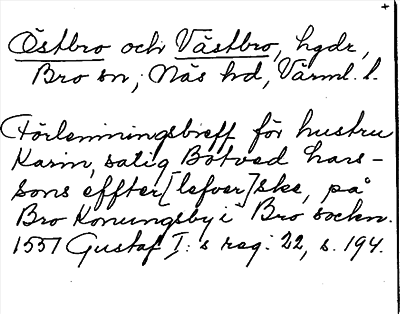 +
Östbro och Västbro, hgdr,
Bro sn, Näs hd, Värml. l.
Förlenningsbreff för hustru
Karin, salig Botved Lars-
sons effter[lefver]ske, på
Bro Konungsby i Bro sockn.
1551 Gustaf I:s reg. 22, s. 194.